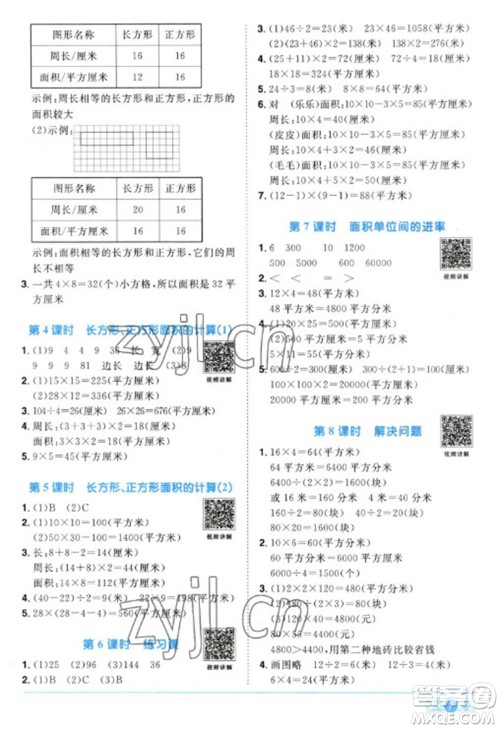 图形名称 长方形 正方形
周长/厘米 16 16
面积/平方厘米 12 16
示例:周长相等的长方形和正方形,正方形的
面积较大
(2)示例:
图形名称 长方形 正方形
周长/厘米 20 16
面积/平方厘米 16 16
示例:面积相等的长方形和正方形,它们的
周长不相等
3. 一共4×8=32(个)小方格,所以面积是32平
方厘米。
第4课时 长方形、正方形面积的计算(1)
1. (1)9 4 4 9 36 长 宽 (2)9
9 9 9 81 边长 边长
视频讲解
2. (1)15×15=225(平方厘米)
(2)28×15=420(平方厘米)
3. 104÷4=26(厘米) 26×26=676(平方厘米)
4. 周长:(3+3)×2=12(厘米)
面积:3×3=9(平方厘米)
5. 9×2=18(厘米) 18×9=162(平方厘米)
第5课时 长方形、正方形面积的计算(2)
1. (1)B (2)C
2. (1)10×10=100(平方厘米)
(2)50×30=1500(平方厘米)
视频讲解
3. 长:8+8-2=14(厘米)
周长:(14+8)×2=44(厘米)
面积:14×8=112(平方厘米)
4. (40-22)÷2=9(米) 22×9=198(平方米)
5. 28×(28-4-4)=560(平方米)
第6课时 练习课
1. (1)25 (2)96 (3)144 36
2. (1)B (2)B (3)C (4)A
视频讲解
3. (1)(46÷2=23(米) 23×46=1058(平方米)
(2)(23+46)×2=138(米)
4. (25+11)×2=72(厘米) 72÷4=18(厘米)
18×18=324(平方厘米)
5. 24÷3=8(米) 8×8=64(平方米)
6. 对 (乐乐)面积:10×10-3×5=85(平方厘米)
周长:10×4=40(厘米)
(皮皮)面积:10×10-3×5=85(平方厘米)
周长:10×4+3×2=46(厘米)
(毛毛)面积:10×10-3×5=85(平方厘米)
周长:10×4+5×2=50(厘米)
7. (12-1)×(9-1)=88(平方米)
第7课时 面积单位间的进率
1. 6 300 10 1200
500 5000 60000 80000
视频讲解
2. < = > =
3. 12×4=48(平方米)
48平方米=4800平方分米
4. (1)20×15=300(平方分米)
300平方分米=3平方米
(2)20×10=200(平方分米)
200平方分米=20000平方厘米
5. 5×4=20(平方分米)
20平方分米=2000平方厘米
2000×9=18000(平方厘米)
第8课时 解决问题
1. 16×4=64(平方米)
64平方米=6400平方分米
6400÷(2×2)=1600(块)
视频讲解
或 16米=160分米 4米=40分米
(160÷2)×(40÷2)=1600(块)
2. 60×30=1800(平方米)
1800÷(10×10)=18(块)
3. (1)6×4=24(平方米)
24平方米=2400平方分米
2400÷(4×4)=150(块)
(2)2400÷(3×10)=80(块)
150×32=4800(元) 80×55=4400(元)
4400<4800,用第二种地砖比较省钱
4. 画图略 12÷2=6(米)
6×4=24(平方米)